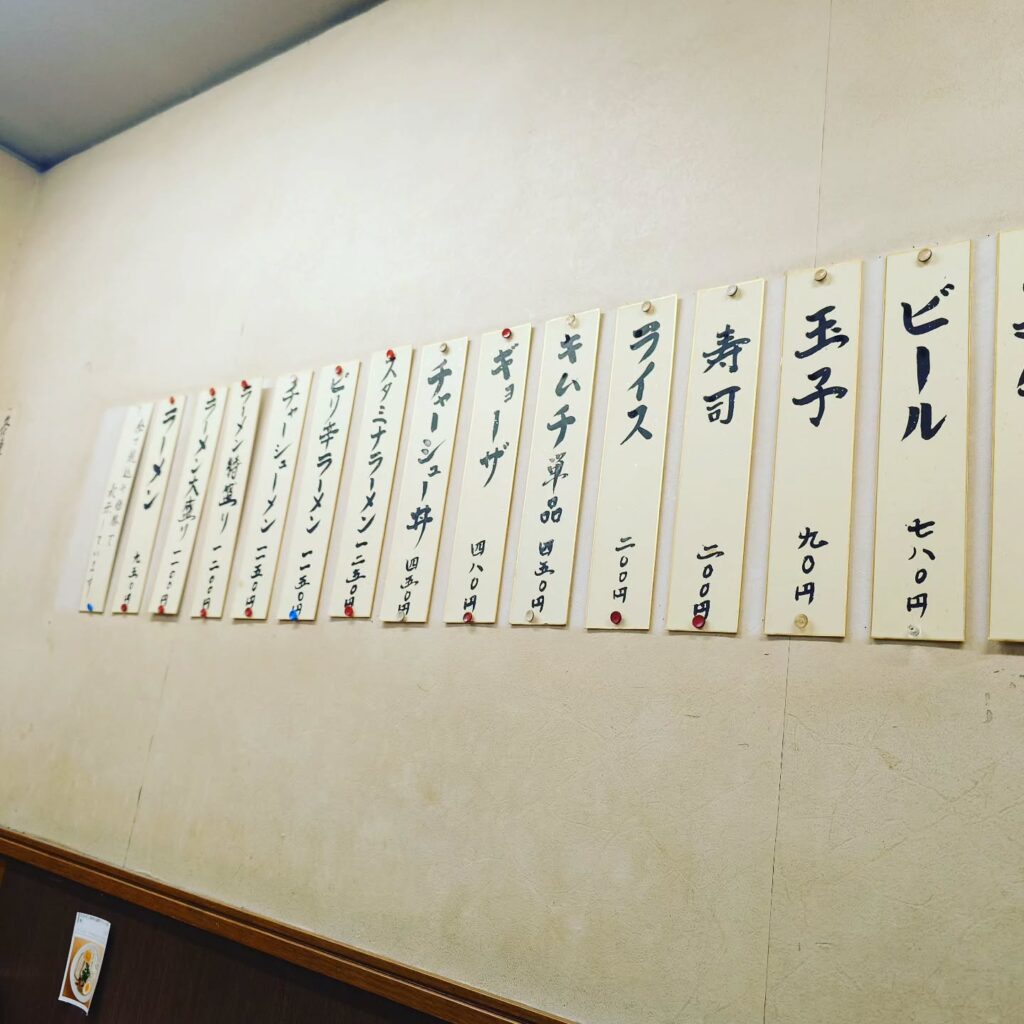 ビール 七八〇円
玉子 九〇円
寿司 二〇〇円
ライス 二〇〇円
キムチ単品 四五〇円
ギョーザ 四八〇円
チャーシュー丼 四五〇円
スタミナラーメン 一二五〇円
ピリ辛ラーメン 一一五〇円
チャーシューメン 一二五〇円
ラーメン特盛り 一二〇〇円
ラーメン大盛り 一一〇〇円
ラーメン 九五〇円
全て税込み価格で
表示しています